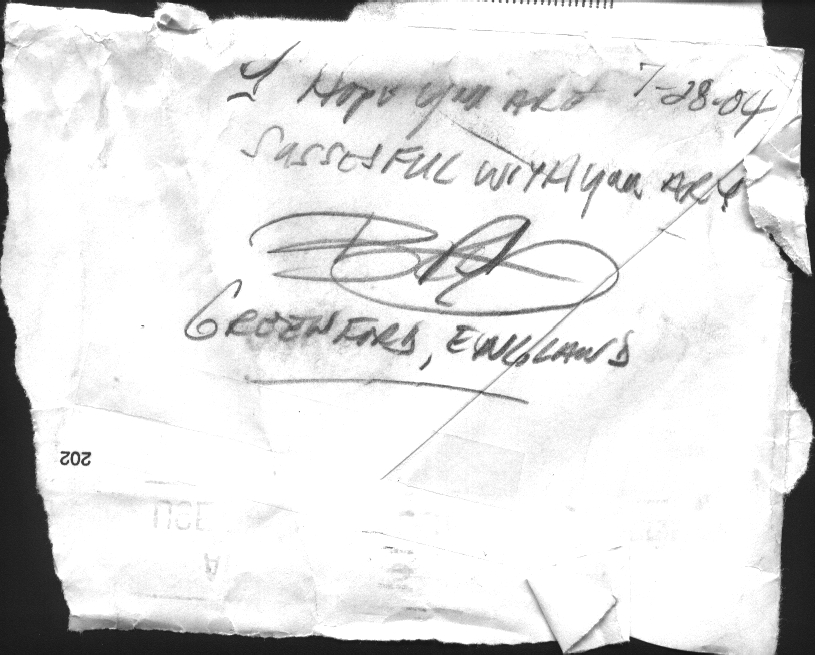 I Hope you ARE 7-28-04
SUSSESFUL WITH your ART
GREENFORD, ENGLAND
202